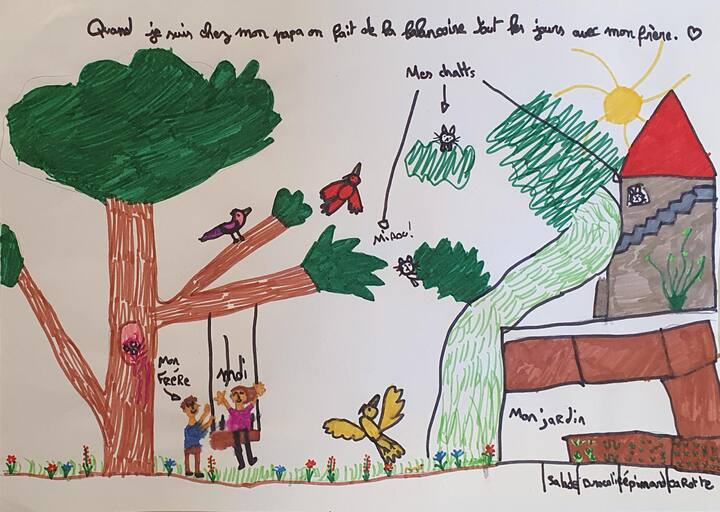 Quand je suis chez mon papa on fait de la balancoire tout les jours avec mon frère. ♡
Mes chatts
Miaou!
Mon
FRÉRE
Mon jardin
Salade Brocoli épinard caRotte